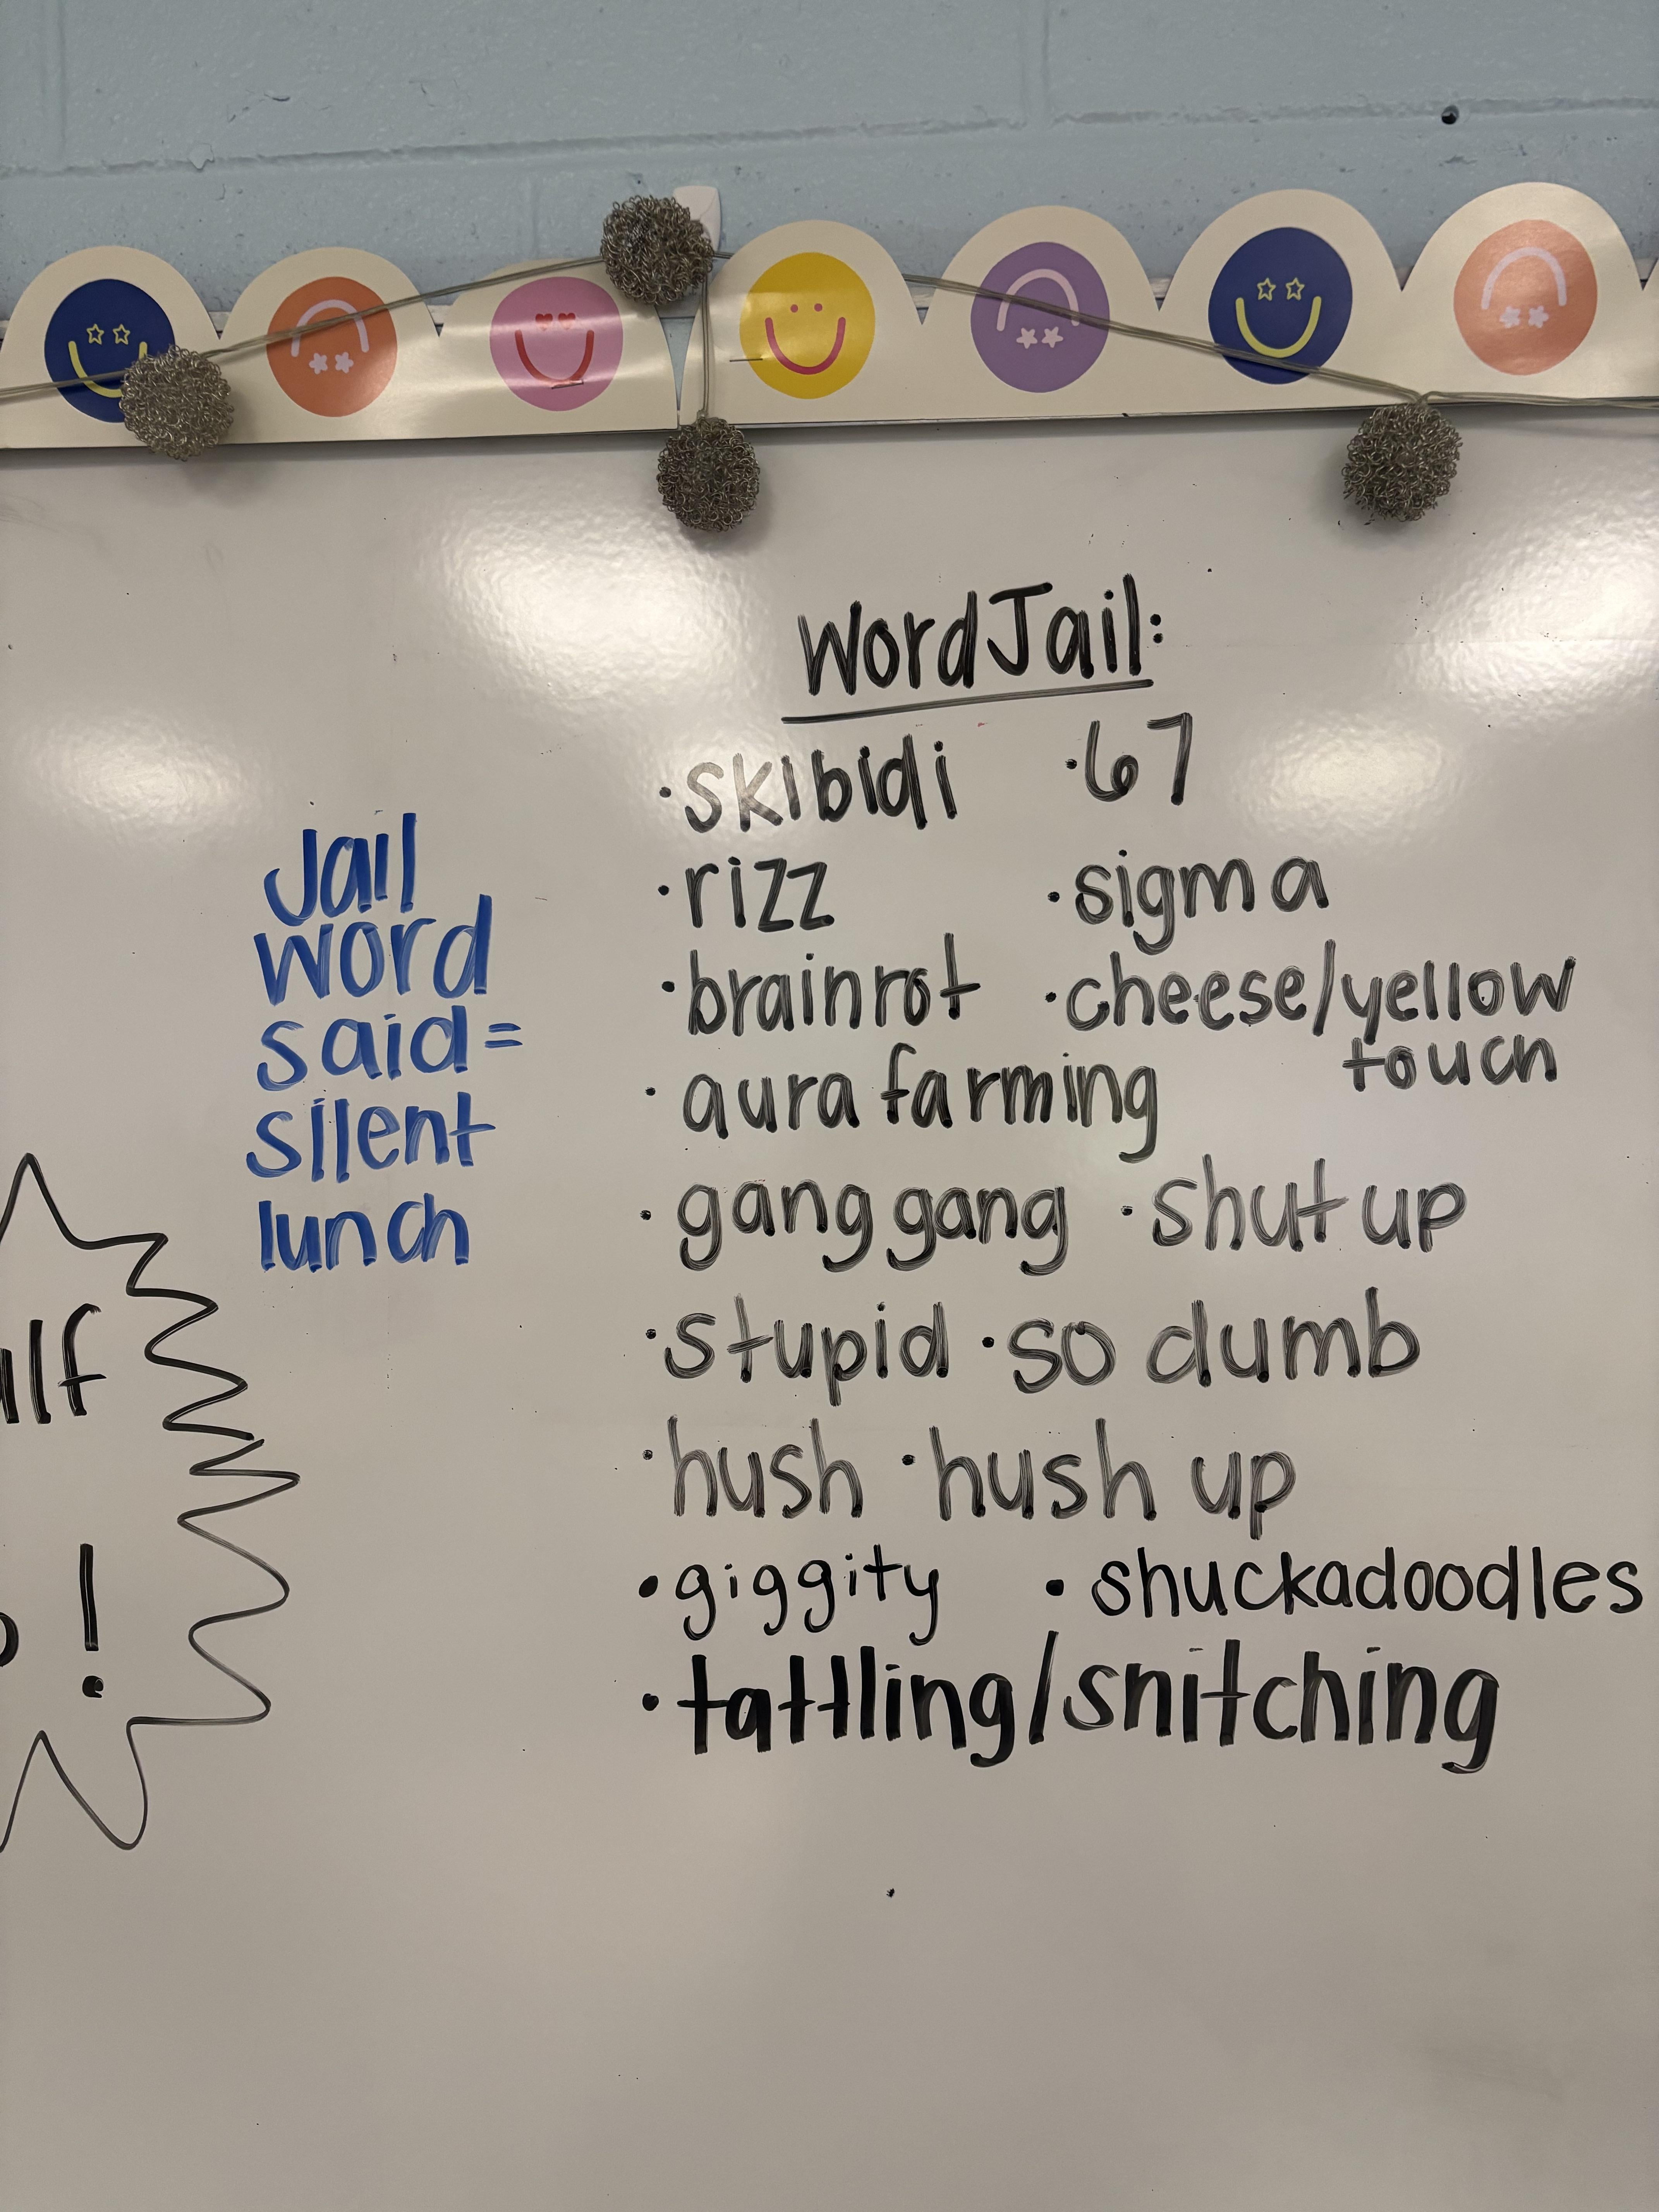 Word Jail:
• skibidi • 67
• rizz • sigma
• brainrot • cheese/yellow
touch
• aura farming
• gang gang • shut up
• stupid • so dumb
• hush • hush up
• giggity • shuckadoodles
• tattling/snitching
Jail
word
said =
silent
lunch
!